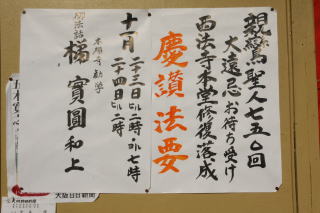 親鸞聖人七五〇回
大遠忌お待ち受け
西法寺本堂修復落成
慶讃法要
十一月
二十三日ヒル二時・夜七時
二十四日ヒル二時
御法話
本願寺 勧学
梯 實圓 和上
大阪日日新聞